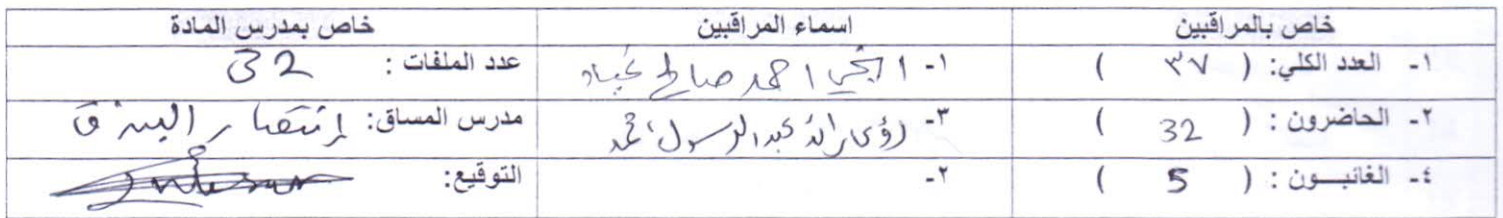 خاص بالمراقبين اسماء المراقبين خاص بمدرس المادة
١- العدد الكلي: ( ٣٧ ) ١- احمد صالح عدد الملفات : 32
٢- الحاضرون : ( 32 ) ٣- عبد الرسول مدرس المساق: إنتصار
٤- الغائبــون : ( 5 ) ٢- التوقيع: